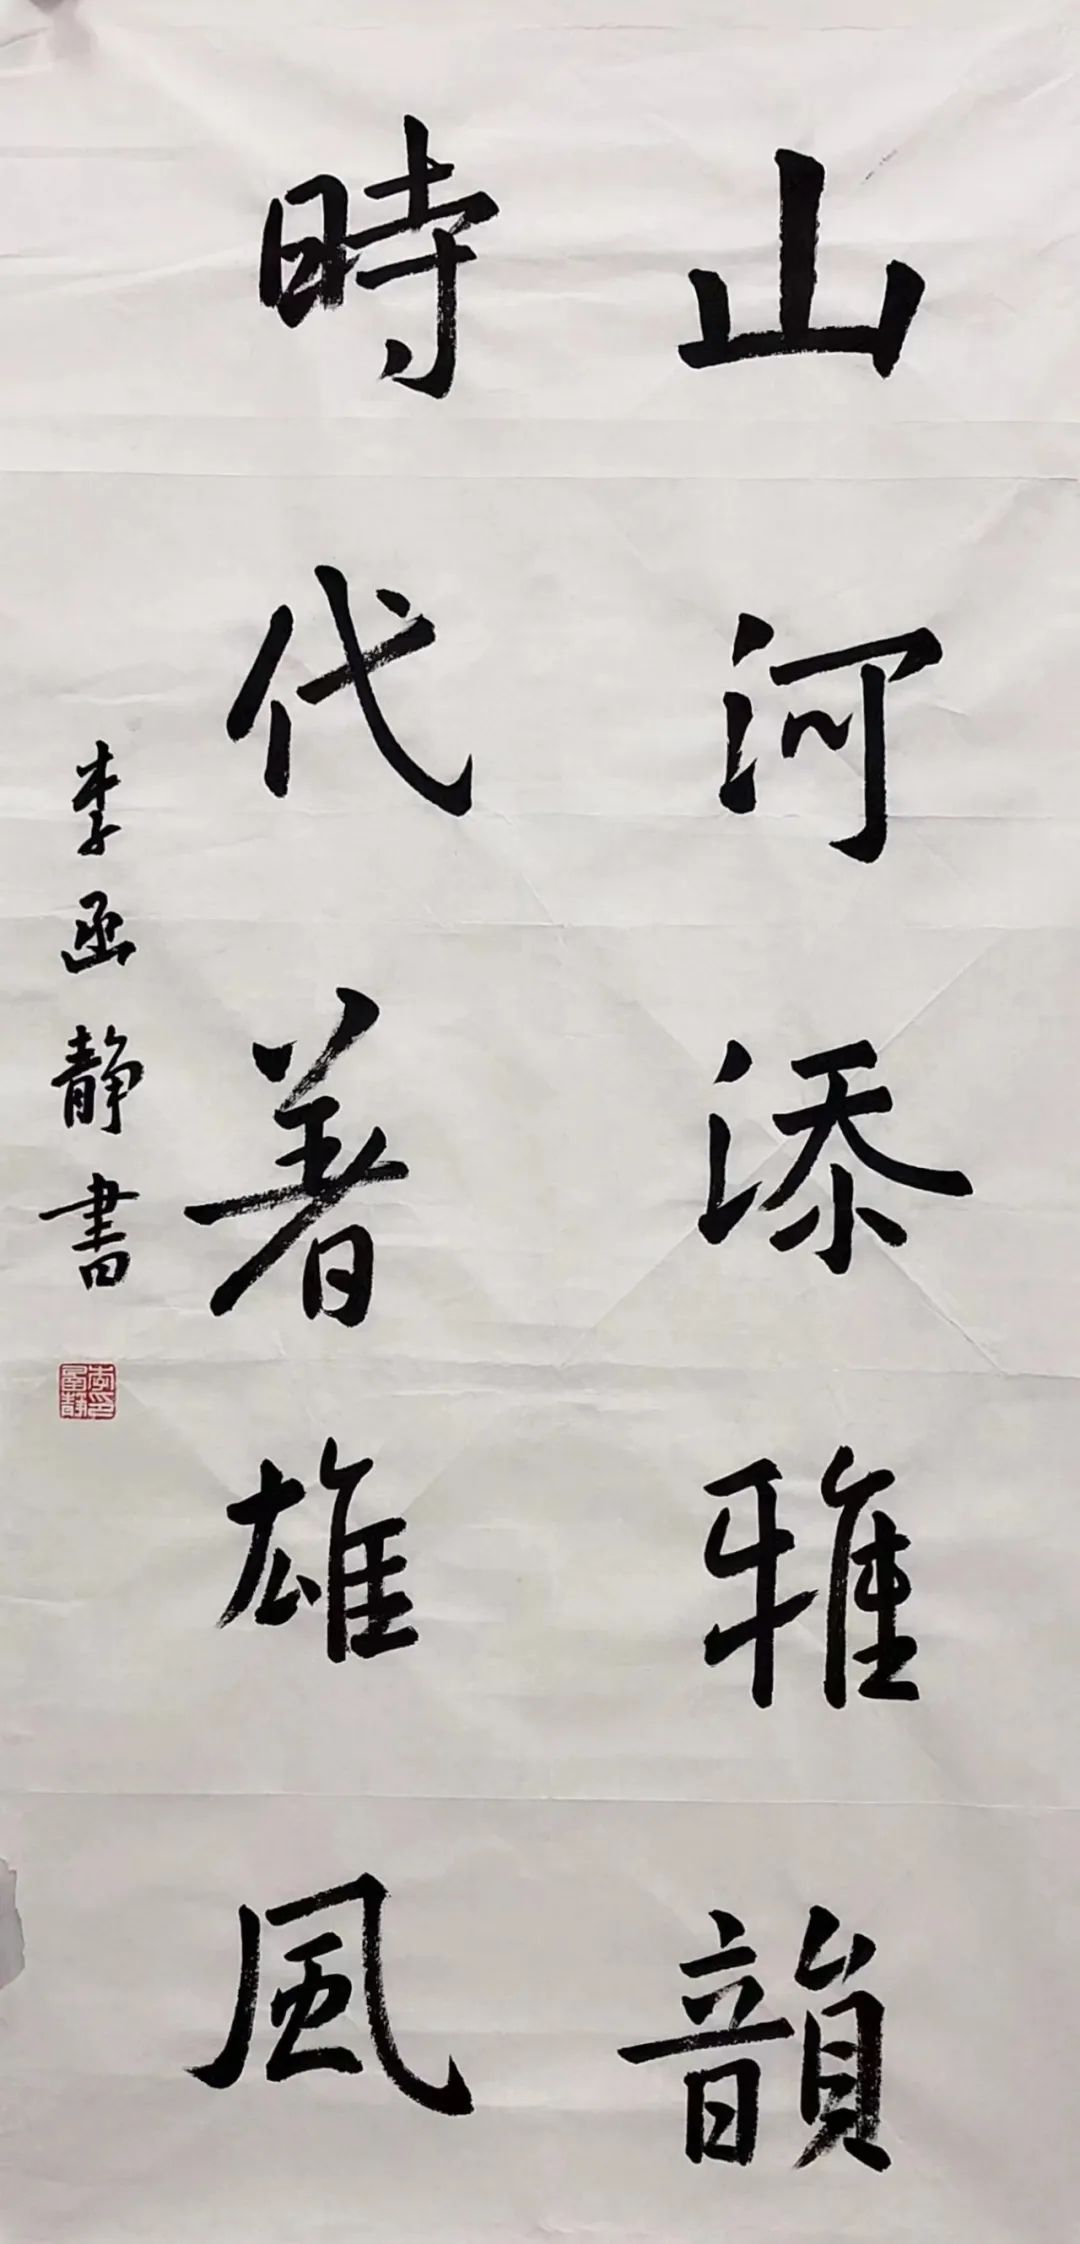 山河添雅韻
時代著雄風
李函靜書